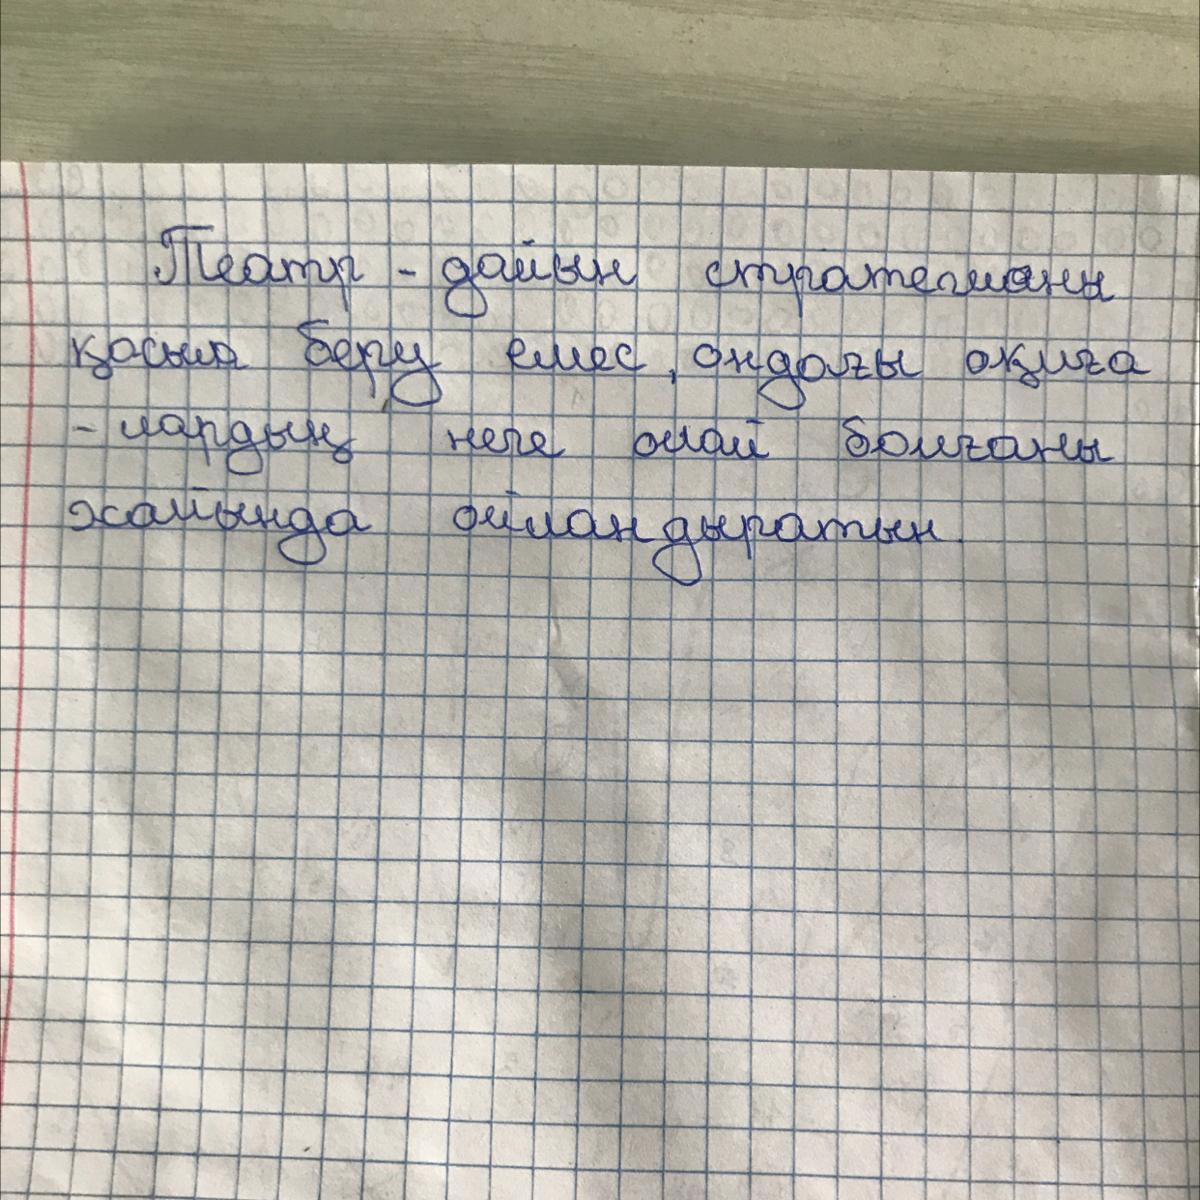 Театр - дайын стратегияны
қосып беру емес, ондағы оқиға
- лардың неге олай болғаны
жайында ойландыратын